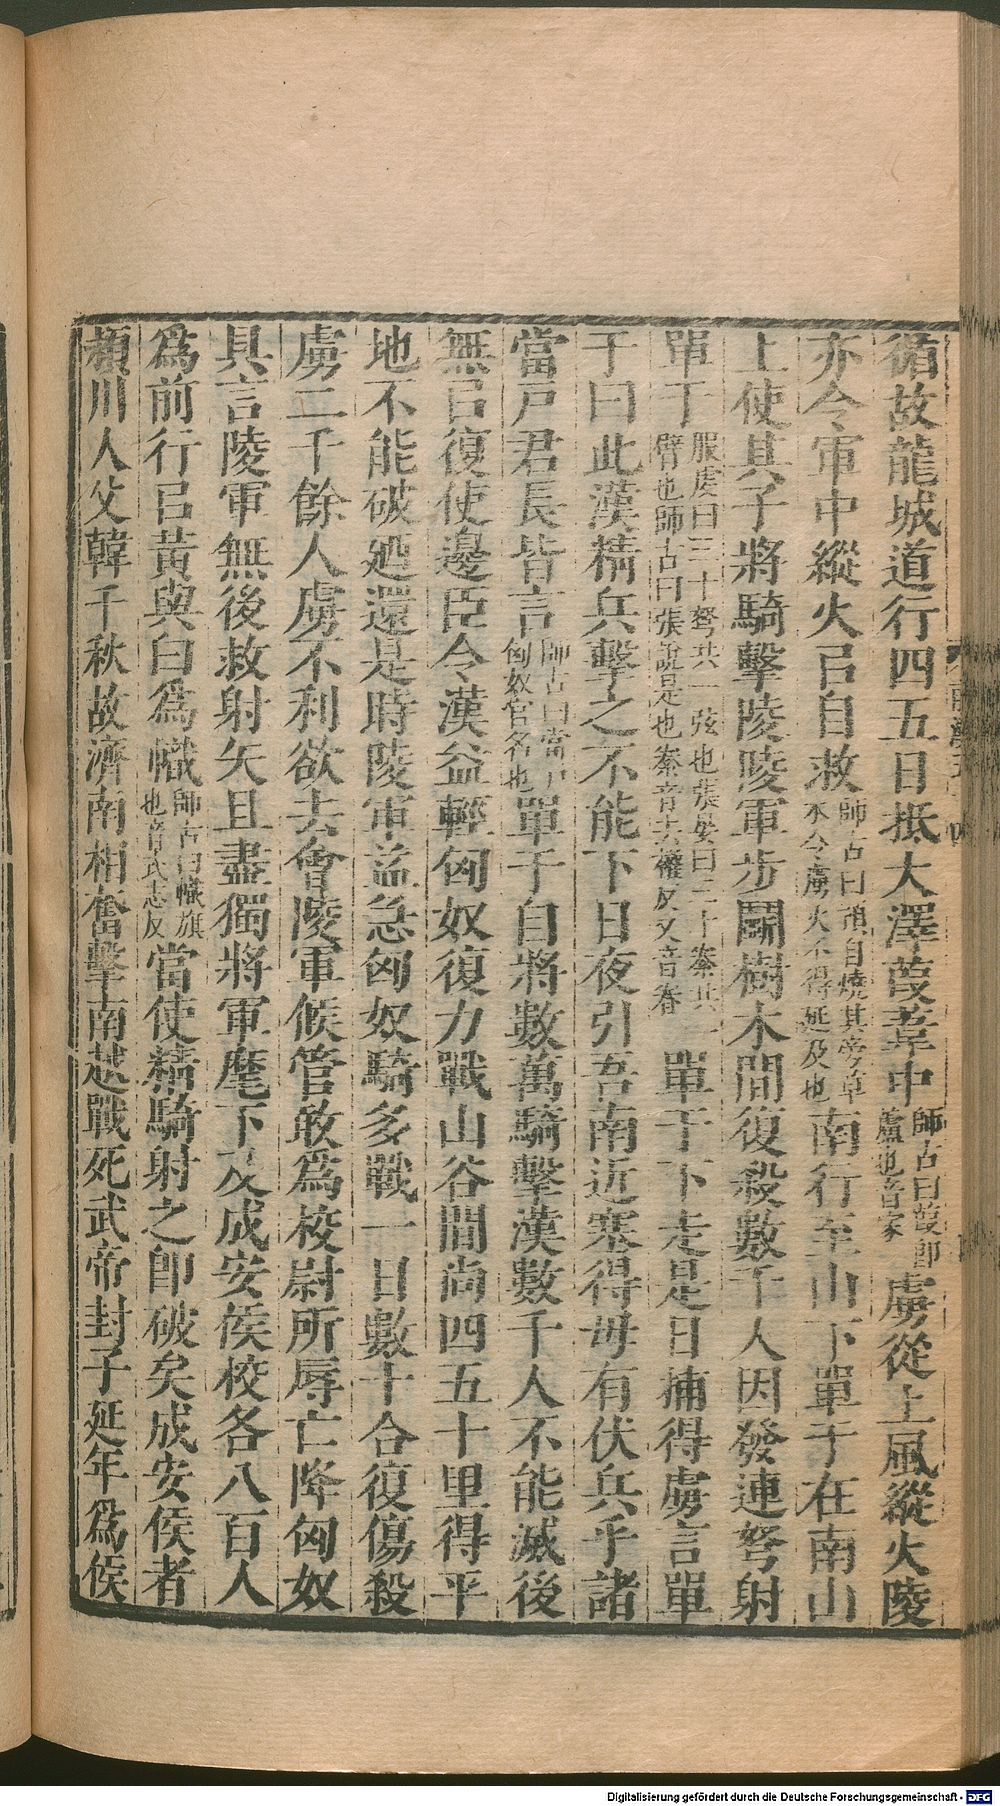 循故龍城道行四五日抵大澤葭葦中師古曰葭即蘆也音家虜從上風縱火陵
亦令軍中縱火㠯自救師古曰預自燒其旁草木令虜火不得延及也南行至山下單于在南山
上使其子將騎擊陵陵軍步鬭樹木間復殺數千人因發連弩射
單于服虔曰三十弩共一弦也張晏曰三十絭共一臂也師古曰張說是也絭音去權反又音眷單于下走是日捕得虜言單
于曰此漢精兵擊之不能下日夜引吾南近塞得毋有伏兵乎諸
當戶君長皆言師古曰當戶匈奴官名也單于自將數萬騎擊漢數千人不能滅後
無㠯復使邊臣令漢益輕匈奴復力戰山谷間尚四五十里得平
地不能破廼還是時陵軍益急匈奴騎多戰一日數十合復傷殺
虜二千餘人虜不利欲去會陵軍候管敢爲校尉所辱亡降匈奴
具言陵軍無後救射矢且盡獨將軍麾下及成安侯校各八百人
爲前行㠯黃與白爲幟師古曰幟旗也音式志反當使精騎射之卽破矣成安侯者
潁川人父韓千秋故濟南相奮擊南越戰死武帝封子延年爲侯
Digitalisierung gefördert durch die Deutsche Forschungsgemeinschaft - DFG